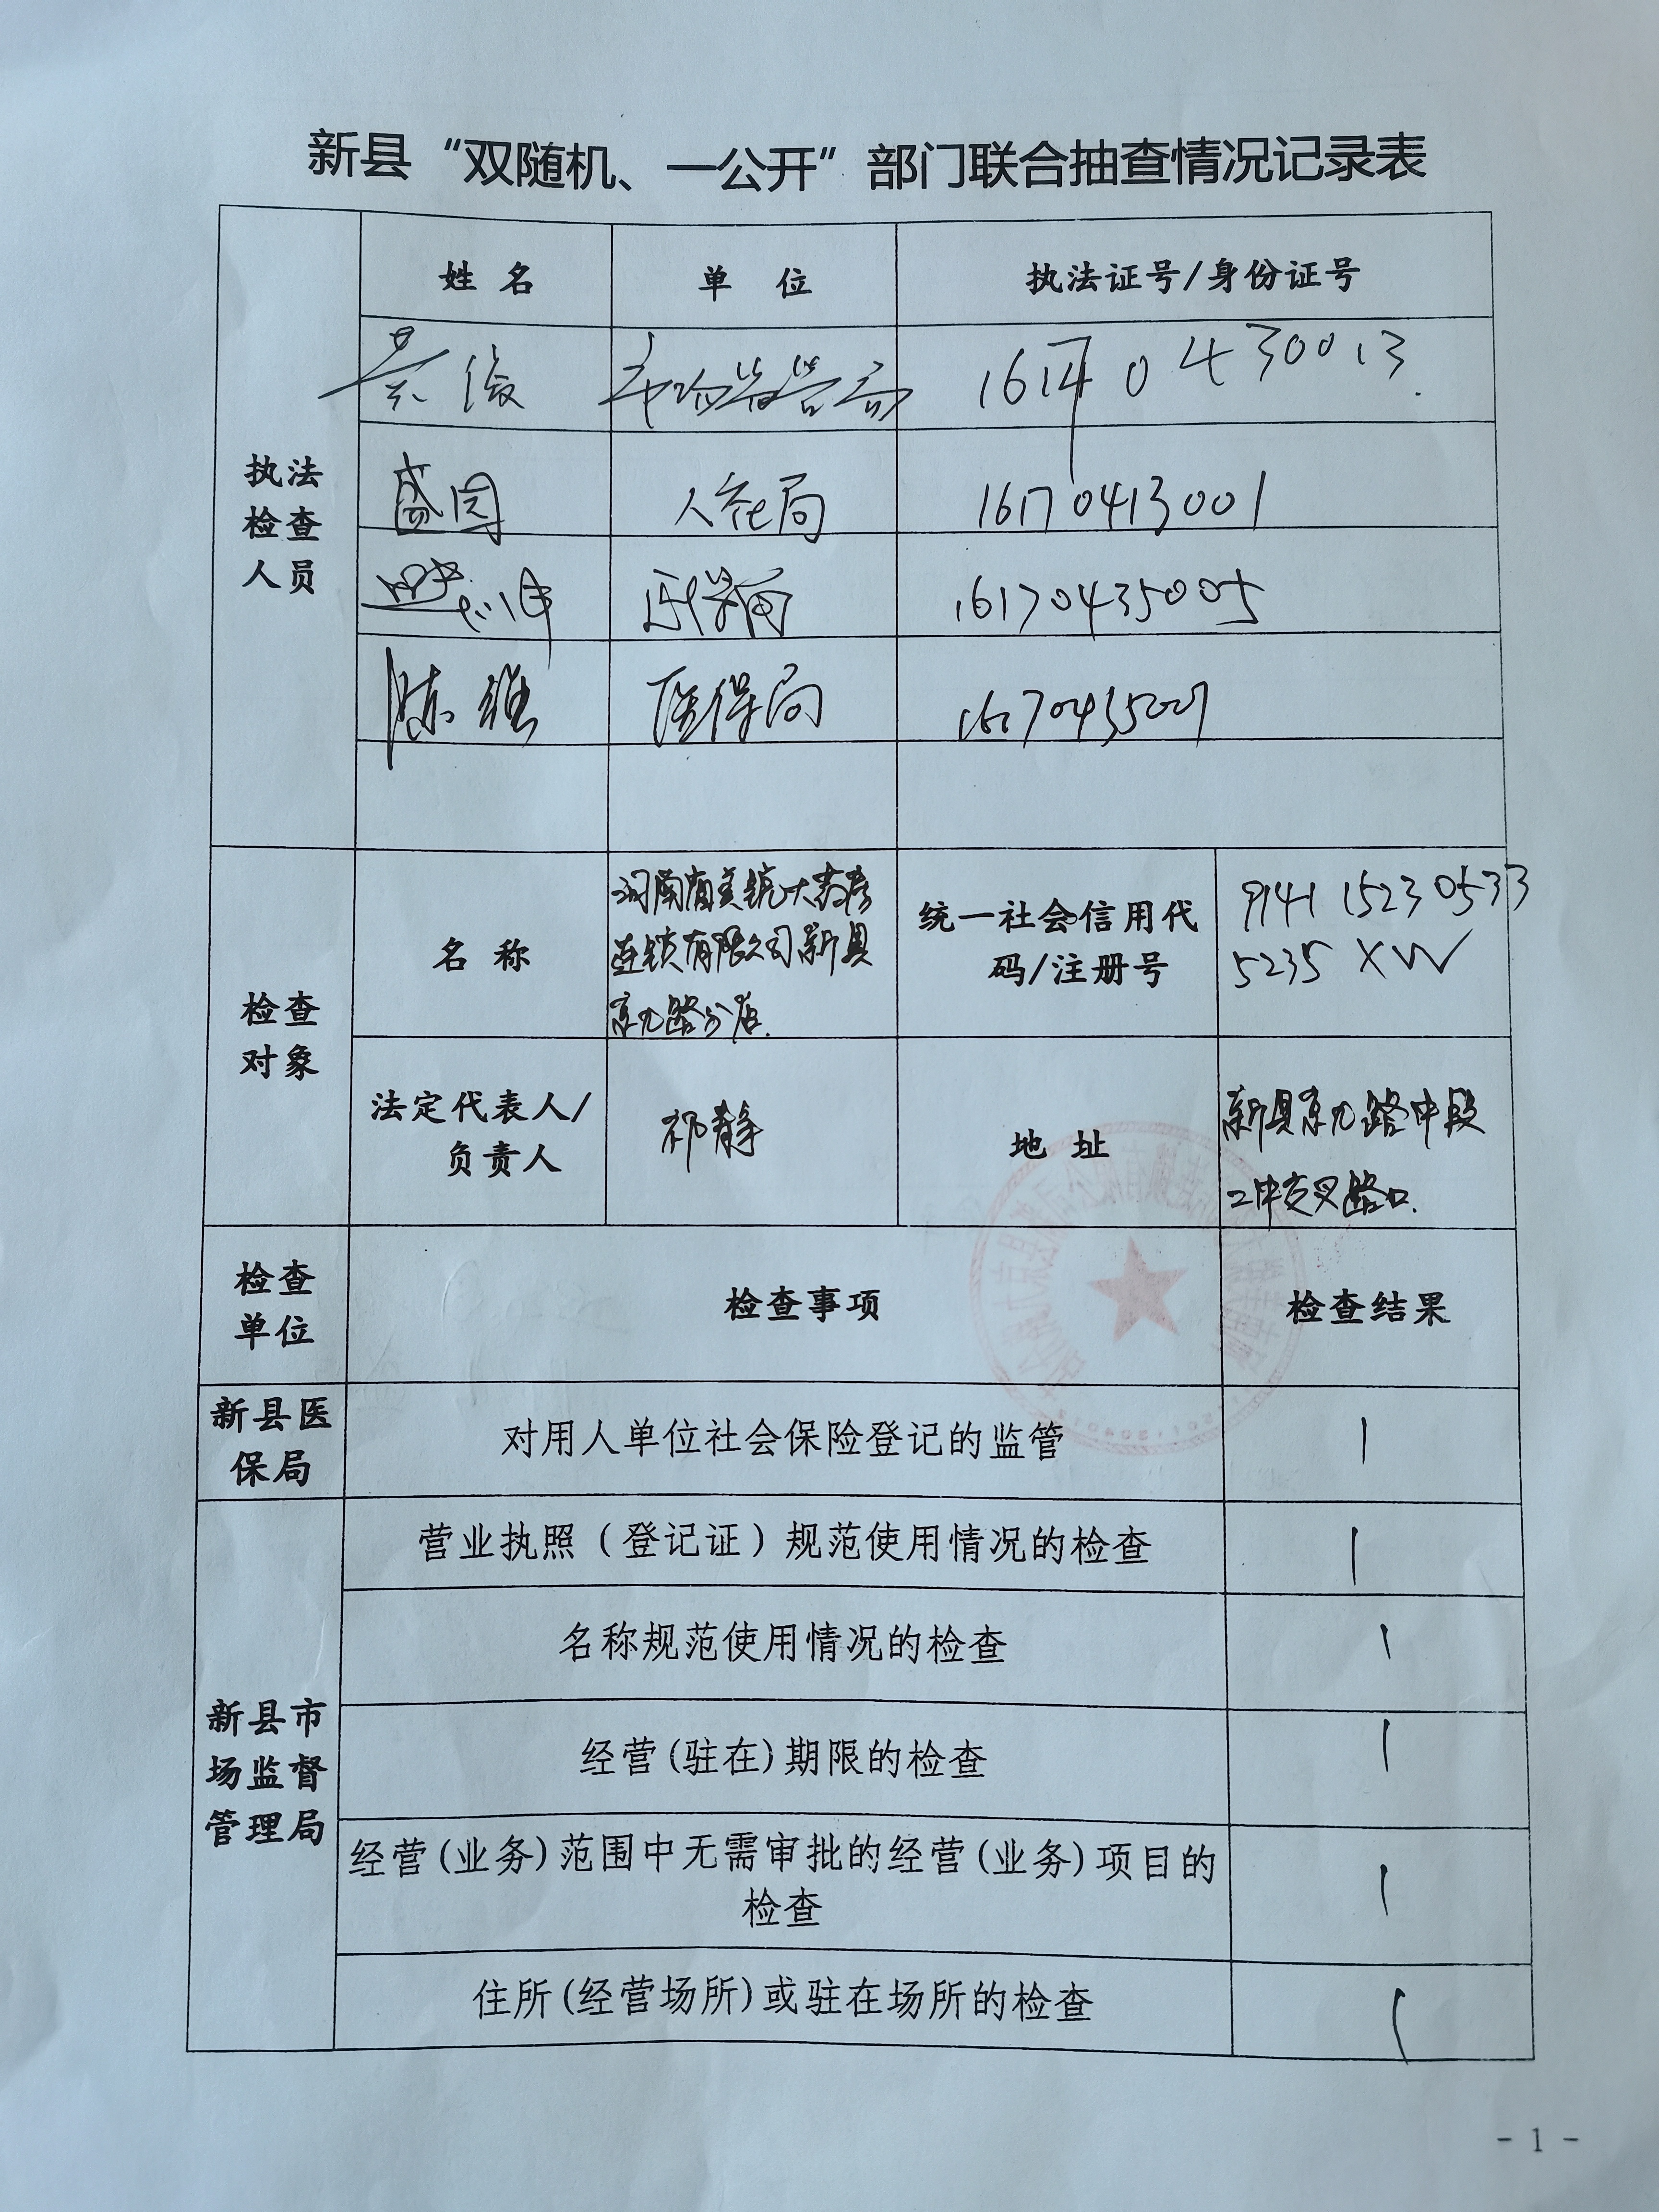 新县“双随机、一公开”部门联合抽查情况记录表
姓 名 单 位 执法证号/身份证号
执法
检查
人员
市场监管局
盛园 人社局 16170413001
医保局 16170435005
陈维 医保局
检查
对象
名 称
连锁有限公司新县
京九路分店.
统一社会信用代
码/注册号
9141 1523 0533
5235 XW
法定代表人/
负责人
祁静
地 址
新县京九路中段
二中交叉路口.
检查
单位
检查事项
检查结果
新县医
保局
对用人单位社会保险登记的监管 1
新县市
场监督
管理局
营业执照（登记证）规范使用情况的检查 1
名称规范使用情况的检查 1
经营(驻在)期限的检查 1
经营(业务)范围中无需审批的经营(业务)项目的
检查 1
住所(经营场所)或驻在场所的检查 1
- 1 -